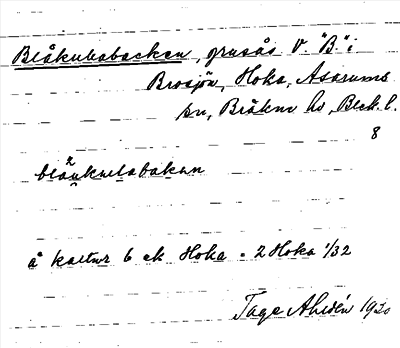 Blåkullabacken, grusås V. "B." i
Brosjön, Hoka, Asarums
sn, Bräkne hs, Blek. l.
8
å kartur 6 ek Hoka = 2 Hoka 1/32
Tage Ahldén 1930